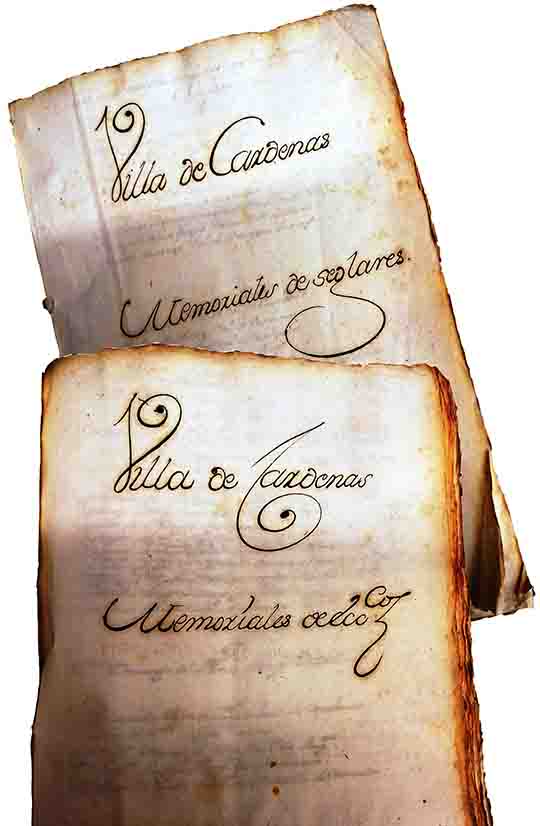 Villa de Cardenas
Memoriales de seglares.
Villa de Cardenas
Memoriales de